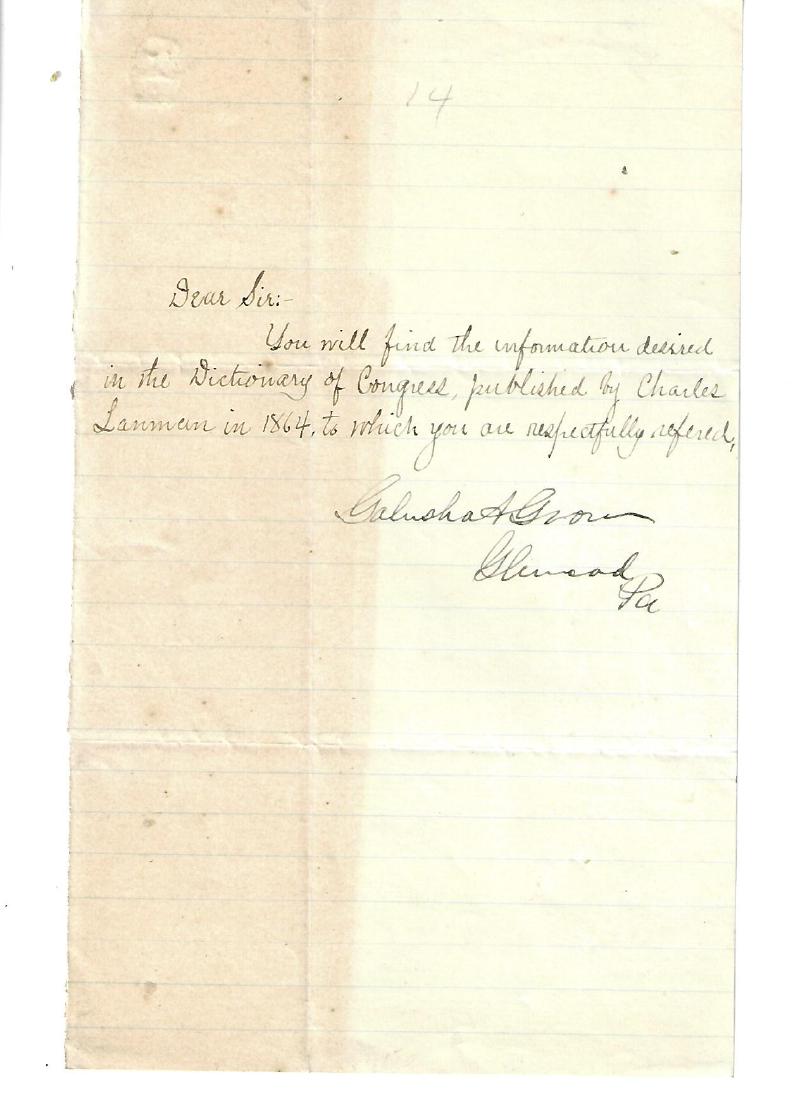 14
Dear Sir:-
You will find the information desired
in the Dictionary of Congress, published by Charles
Lanman in 1864, to which you are respectfully refered,
Galusha A Grow
Glenwood
Pa